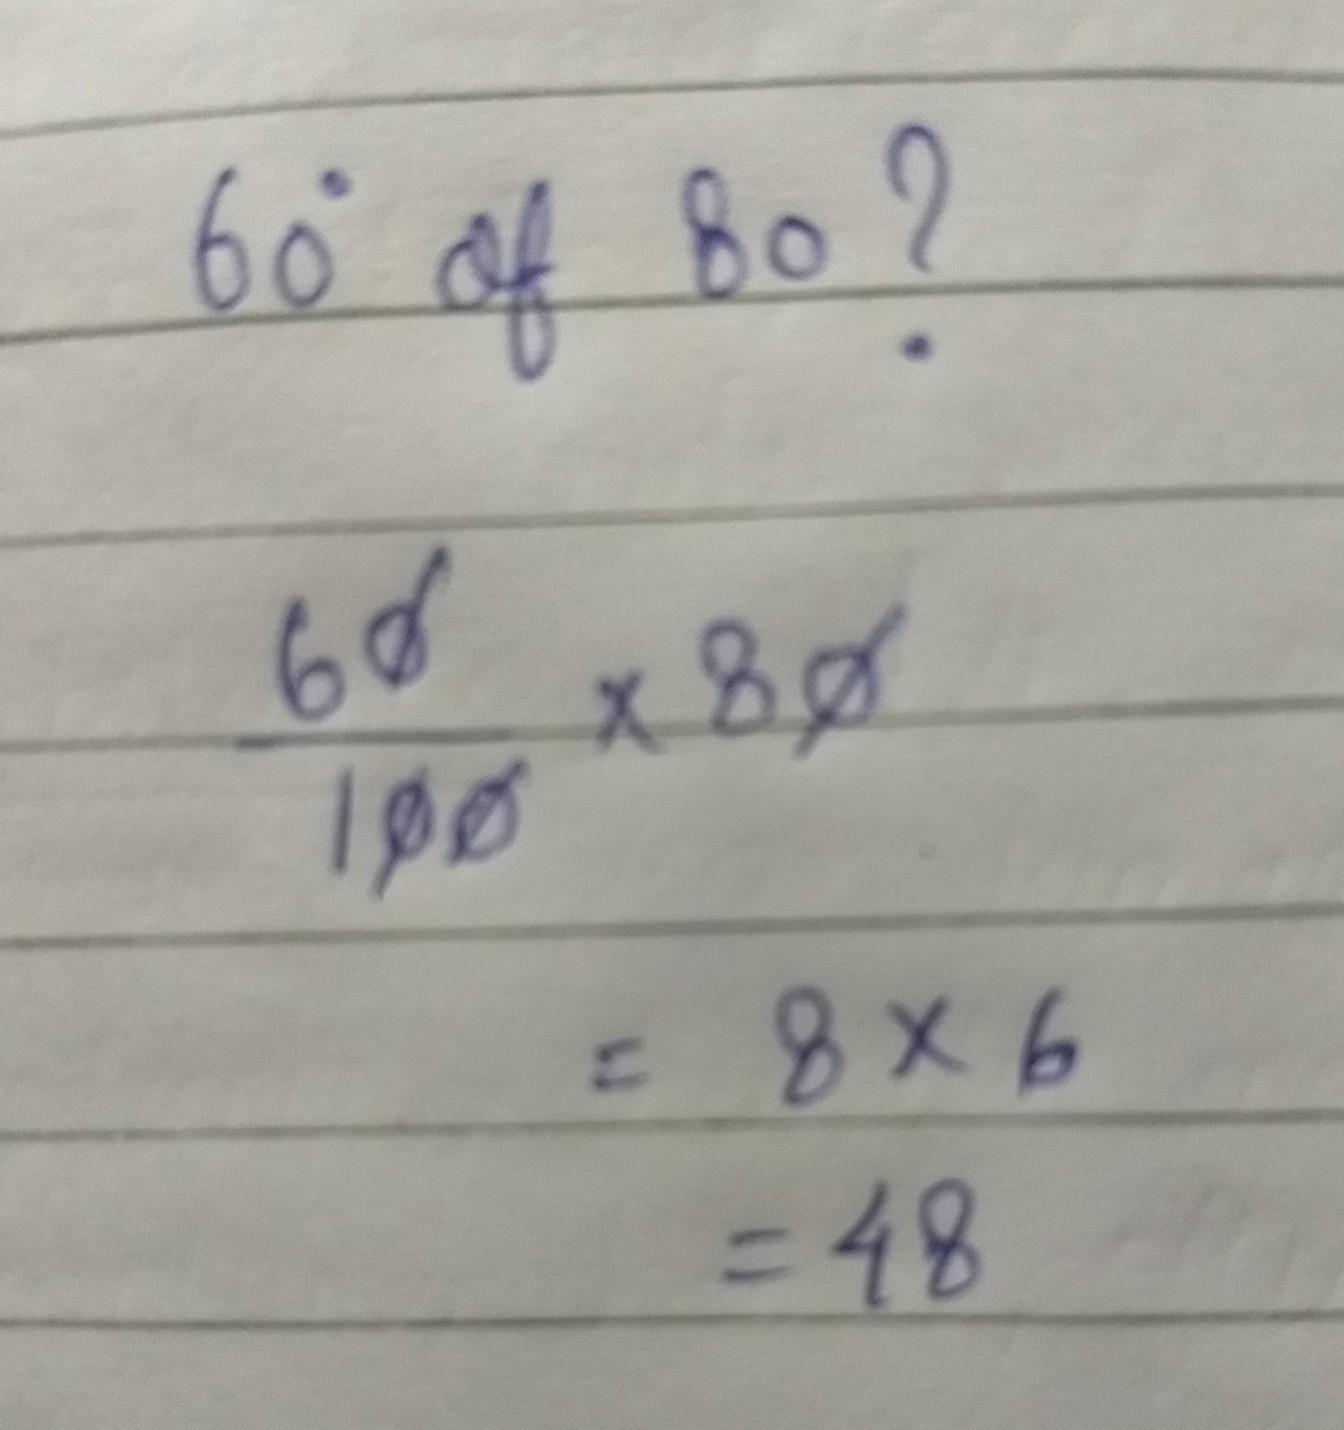 60° of 80?
60/100 × 80
= 8 × 6
= 48